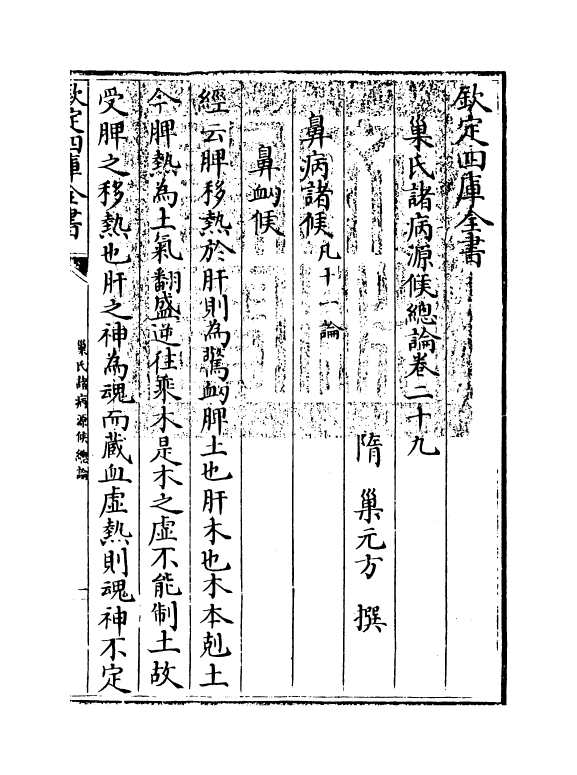 欽定四庫全書
巢氏諸病源候總論卷二十九
隋 巢元方 撰
鼻病諸候凡十一論
鼻衄候
經云脾移熱於肝則為驚衄脾土也肝木也木本剋土
今脾熱為土氣翻盛逆往乘木是木之虛不能制土故
受脾之移熱也肝之神為魂而藏血虛熱則魂神不定
欽定四庫全書
巢氏諸病源候總論
一